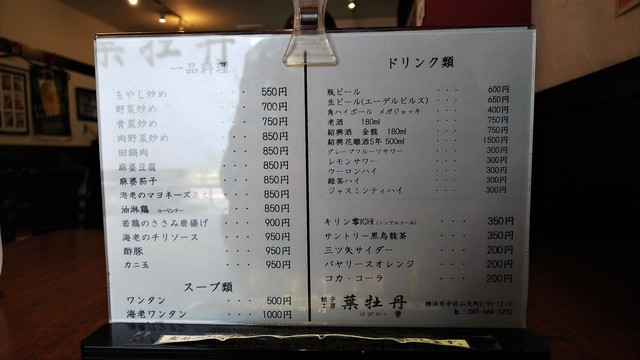 葉牡丹
一品料理
もやし炒め ・・・ 550円
野菜炒め ・・・ 700円
青菜炒め ・・・ 750円
肉野菜炒め ・・・ 850円
回鍋肉 ・・・ 850円
麻婆豆腐 ・・・ 850円
麻婆茄子 ・・・ 850円
海老のマヨネーズ ・・・ 850円
油淋鶏 ユーリンチー ・・・ 850円
若鶏のささみ唐揚げ ・・・ 900円
海老のチリソース ・・・ 950円
酢豚 ・・・ 950円
カニ玉 ・・・ 950円
スープ類
ワンタン ・・・ 500円
海老ワンタン ・・・ 1000円
ドリンク類
瓶ビール ・・・ 600円
生ビール(エーデルピルス) ・・・ 650円
角ハイボール メガジョッキ ・・・ 400円
老酒 180ml ・・・ 750円
紹興酒 金龍 180ml ・・・ 750円
紹興花雕酒5年 500ml ・・・ 1500円
グレープフルーツサワー ・・・ 300円
レモンサワー ・・・ 300円
ウーロンハイ ・・・ 300円
緑茶ハイ ・・・ 300円
ジャスミンティハイ ・・・ 300円
キリン零ICHI(ノンアルコール) ・・・ 350円
サントリー黒烏龍茶 ・・・ 350円
三ツ矢サイダー ・・・ 200円
バヤリースオレンジ ・・・ 200円
コカ・コーラ ・・・ 200円
餃子工房 葉牡丹